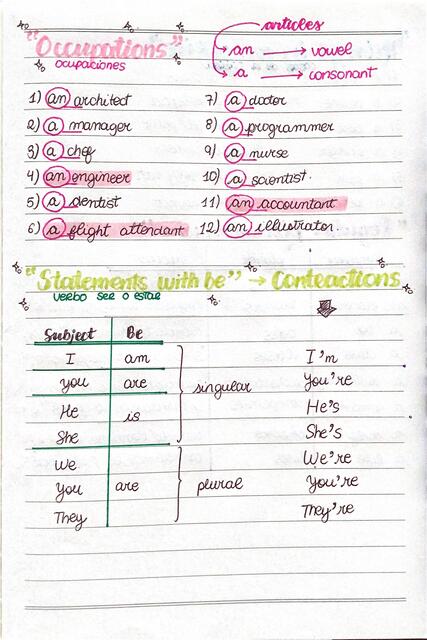 "Occupations"
ocupaciones
articles
an → vowel
a → consonant
1) an architect
2) a manager
3) a chef
4) an engineer
5) a dentist
6) a flight attendant
7) a doctor
8) a programmer
9) a nurse
10) a scientist.
11) an accountant
12) an illustrator.
"Statements with be" → Conteactions
verbo ser o estar
Subject Be
I am I'm
you are singular You're
He is He's
She She's
We We're
You are plural You're
They They're